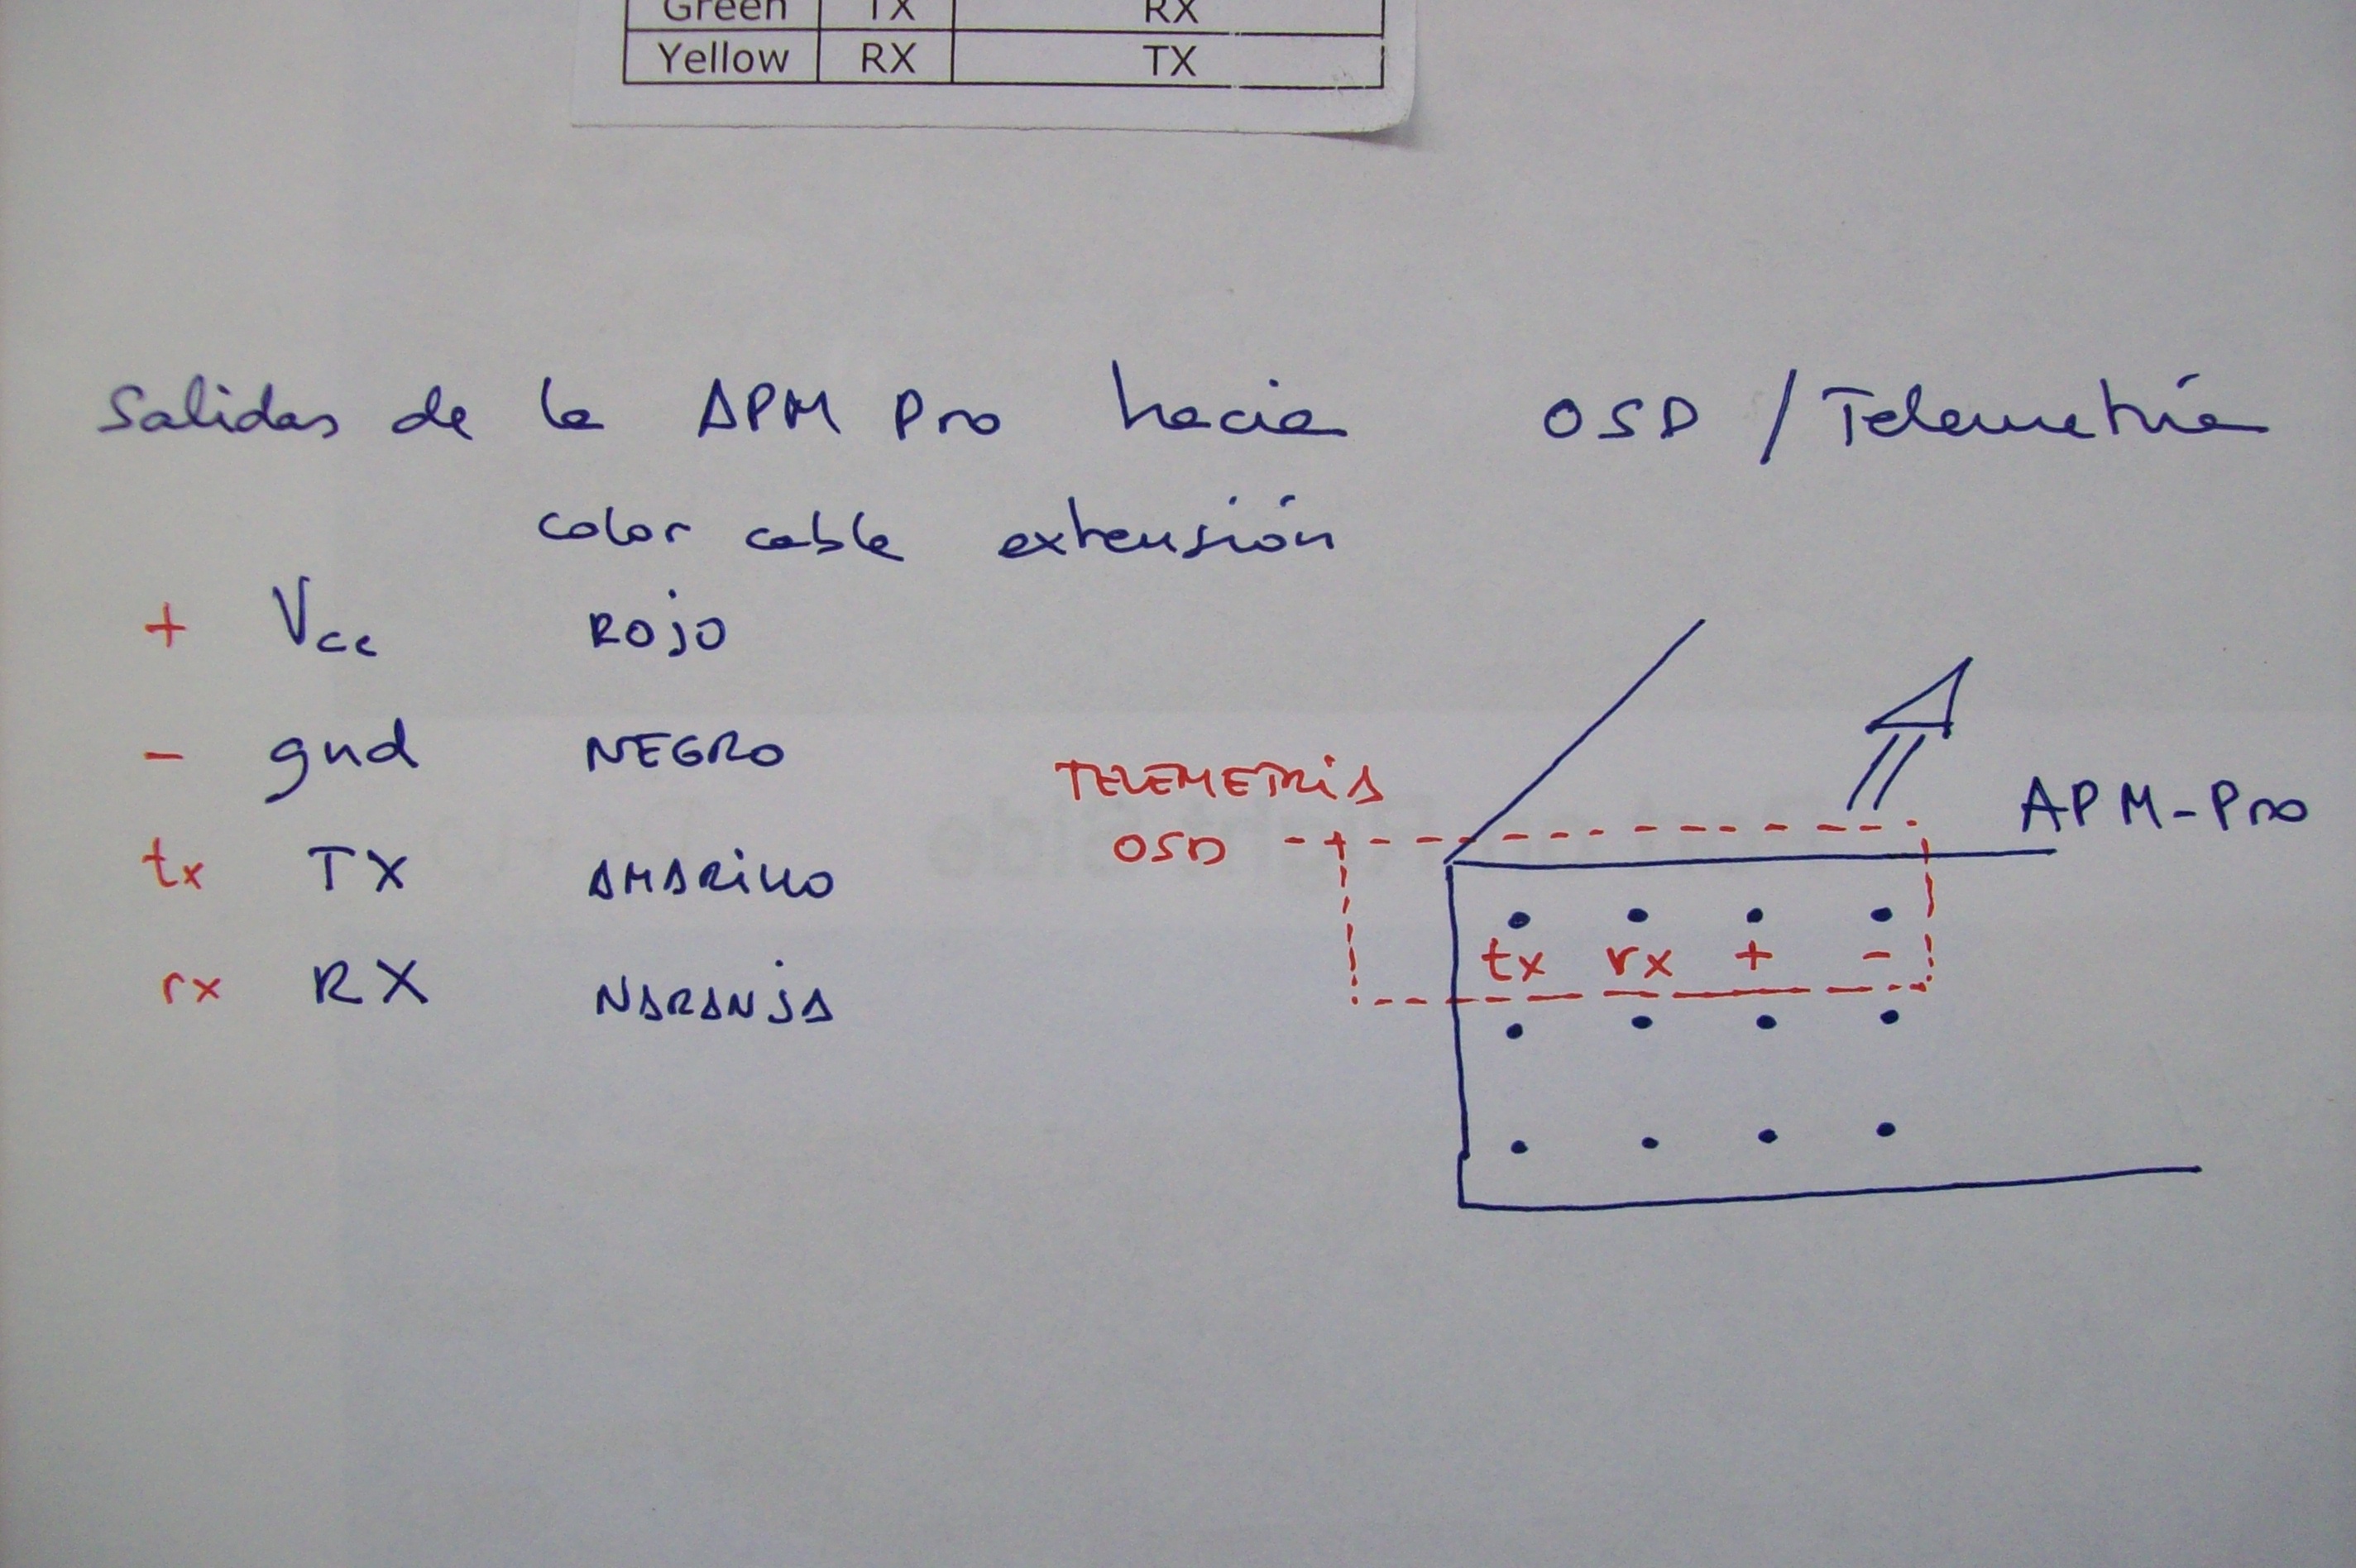 Green TX RX
Yellow RX TX
Salidas de la APM Pro hacia OSD / Telemetría
color cable extensión
+ Vcc ROJO
- gnd NEGRO
tx TX AMARILLO
rx RX NARANJA
TELEMETRIA
OSD
APM-Pro
tx rx + -